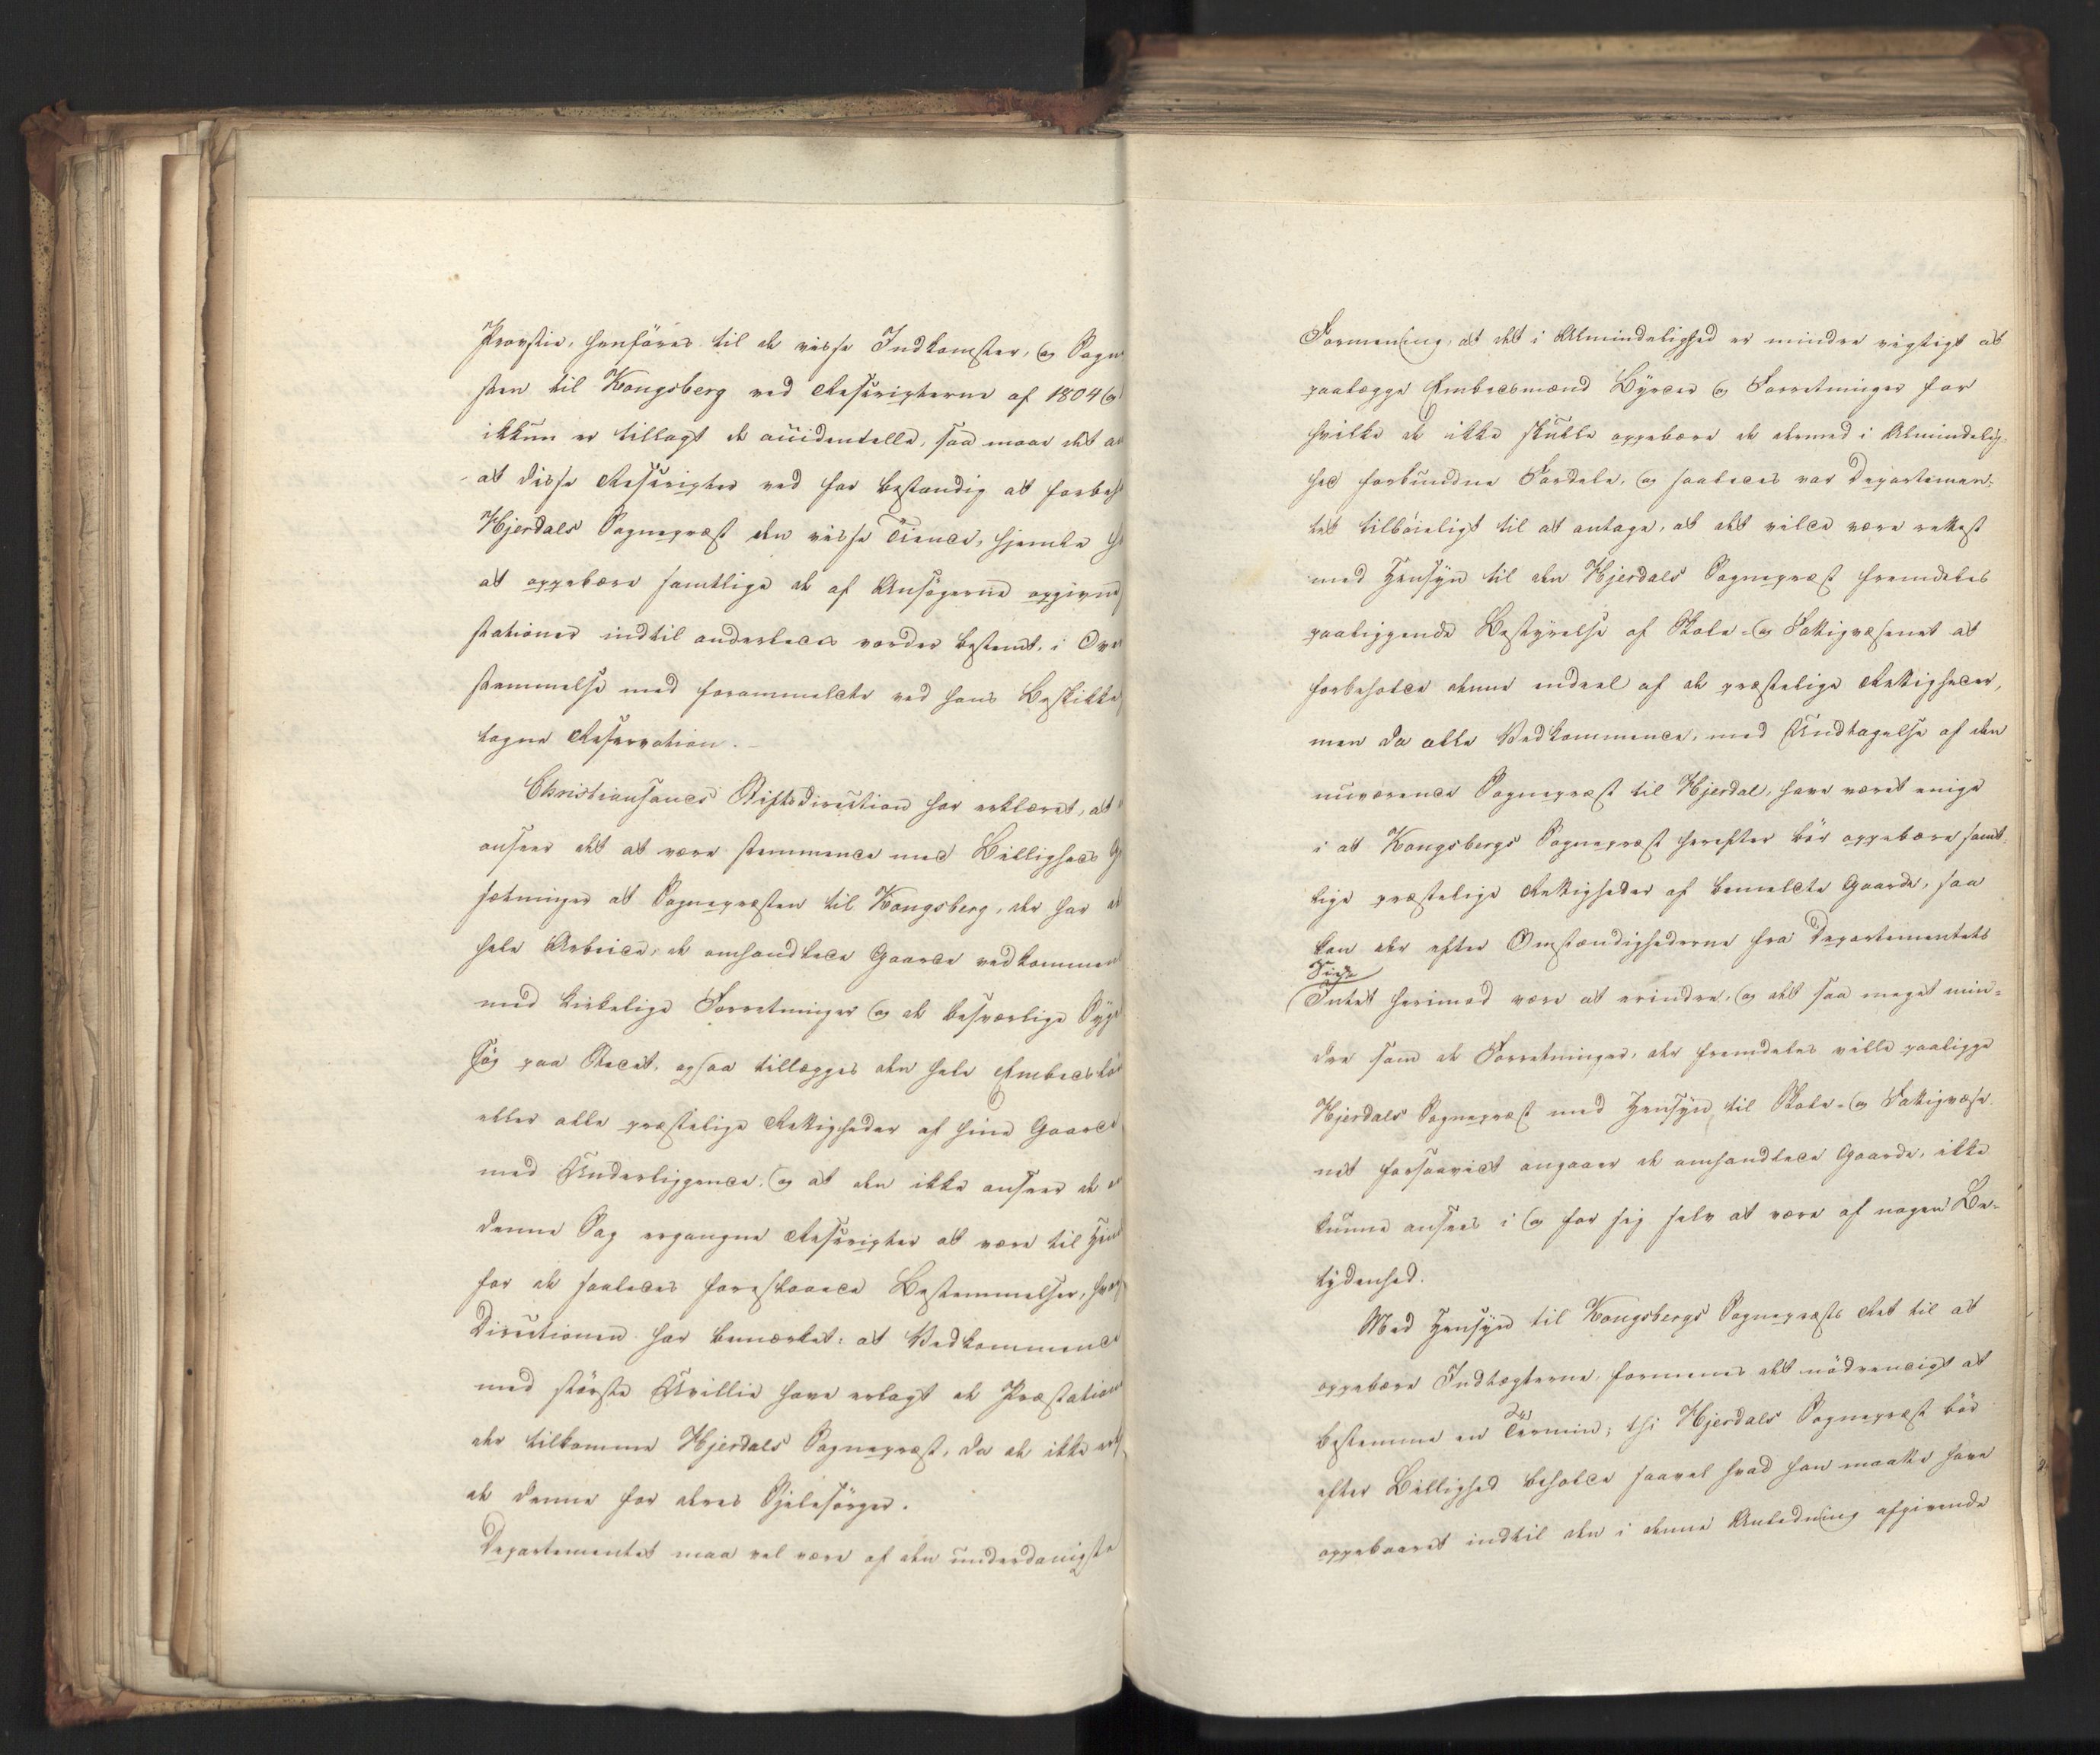 Provstie, henføres til de visse Indkomster, og Sogne
sten til Kongsberg ved Rescripterne af 1804 og
ikkun er tillagt de accidentelle, saa maae det
at disse Rescripter ved for bestandig at forbeh
Hjerdals Sognepræst den visse Tiende, hjemle
at oppebære samtlige de af Ansøgerne opgivne
stationer indtil anderledes vorder bestemt, i Over
stemmelse med forommeldte ved hans Beskikke
tagne Reservation.
Christiansands Stiftsdirection har erklæret, at
anseer det at være stemmende med Billigheds G
sætninger at Sognepræsten til Kongsberg, der har
hele Arbeide, de omhandlede Gaarde vedkommen
med kirkelige Forretninger og de besværlige Syge
sög paa Stedet, ogsaa tillægges den hele Embedslön
eller alle præstelige Rettigheder af hine Gaarde
med Underliggende, og at den ikke anseer de
denne Sag ergangne Rescripter at være til Hin
for de saaledes foreslaaede Bestemmelser, hvor
Directionen har bemærket: at Vedkommende
med største Uvillie have erlagt de Præstation
der tilkomme Hjerdals Sognepræst, da de ikke
de denne for deres Sjelesörger.
Departementet maa vel være af den underdanigste
Formening, at det i Almindelighed er mindre rigtigt at
paalægge Embedsmænd Byrder og Forretninger for
hvilke de ikke skulle oppebære de dermed i Almindelig-
hed forbundne Fordele, og saaledes var Departemen-
tet tilböieligt til at antage, at det vilde være rettest
med Hensyn til den Hjerdals Sognepræst fremdeles
paaliggende Bestyrelse af Skole- og Fattigvæsenet at
forbeholde denne endeel af de præstelige Rettigheder,
men da alle Vedkommende, med Undtagelse af den
nuværende Sognepræst til Hjerdal, have været enige
i at Kongsbergs Sognepræst herefter bör oppebære samt-
lige præstelige Rettigheder af bemeldte Gaarde, saa
kan der efter Omstændighederne fra Departementets
Side
Intet herimod være at erindre, og det saa meget min-
dre som de Forretninger, der fremdeles ville paaligge
Hjerdals Sognepræst med Hensyn til Skole- og Fattigvæse-
net forsaavidt angaaer de omhandlede Gaarde, ikke
kunne ansees i og for sig selv at være af nogen Be-
tydenhed.
Med Hensyn til Kongsbergs Sognepræsts Ret til at
oppebære Indtægterne, formenes det nödvendigt at
bestemme en Termin; thi Hjerdals Sognepræst bör
efter Billighed beholde saavel hvad han maatte have
oppebaaret indtil den i denne Anledning afgivende